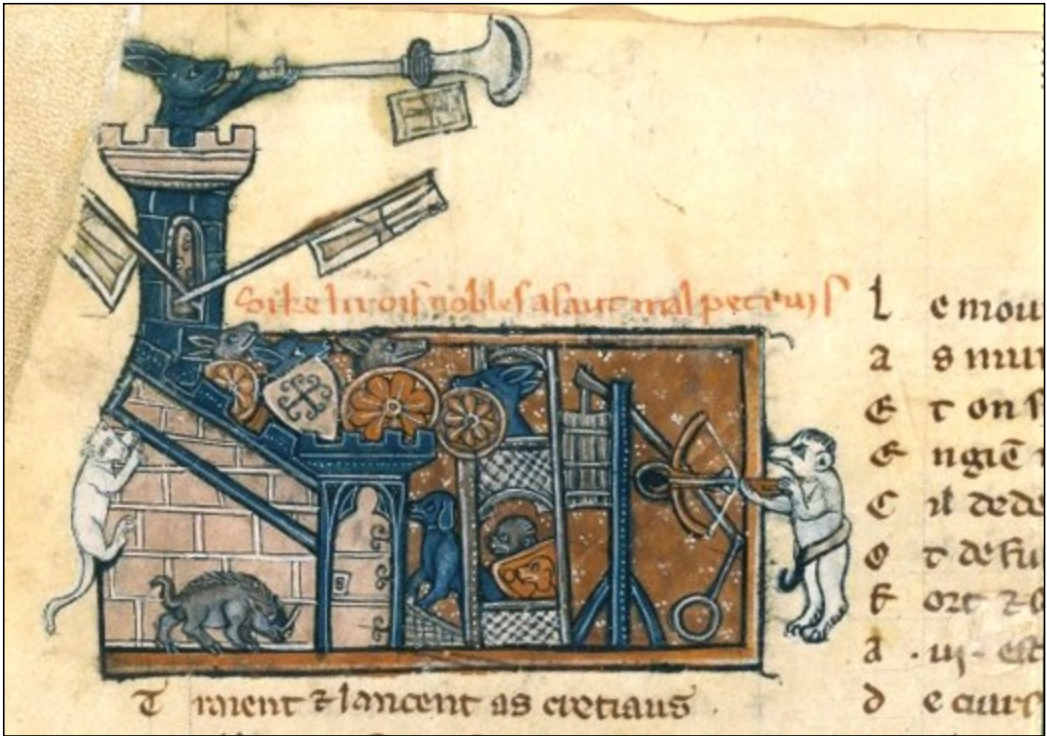 Si ke li rois nobles asaut malpertuis
T raient ⁊ lancent as cretiaus .
L e mou
a s mur
E t on
E ngiē
C il dede
o t de fu
F ort ⁊
a . iij . est
d e